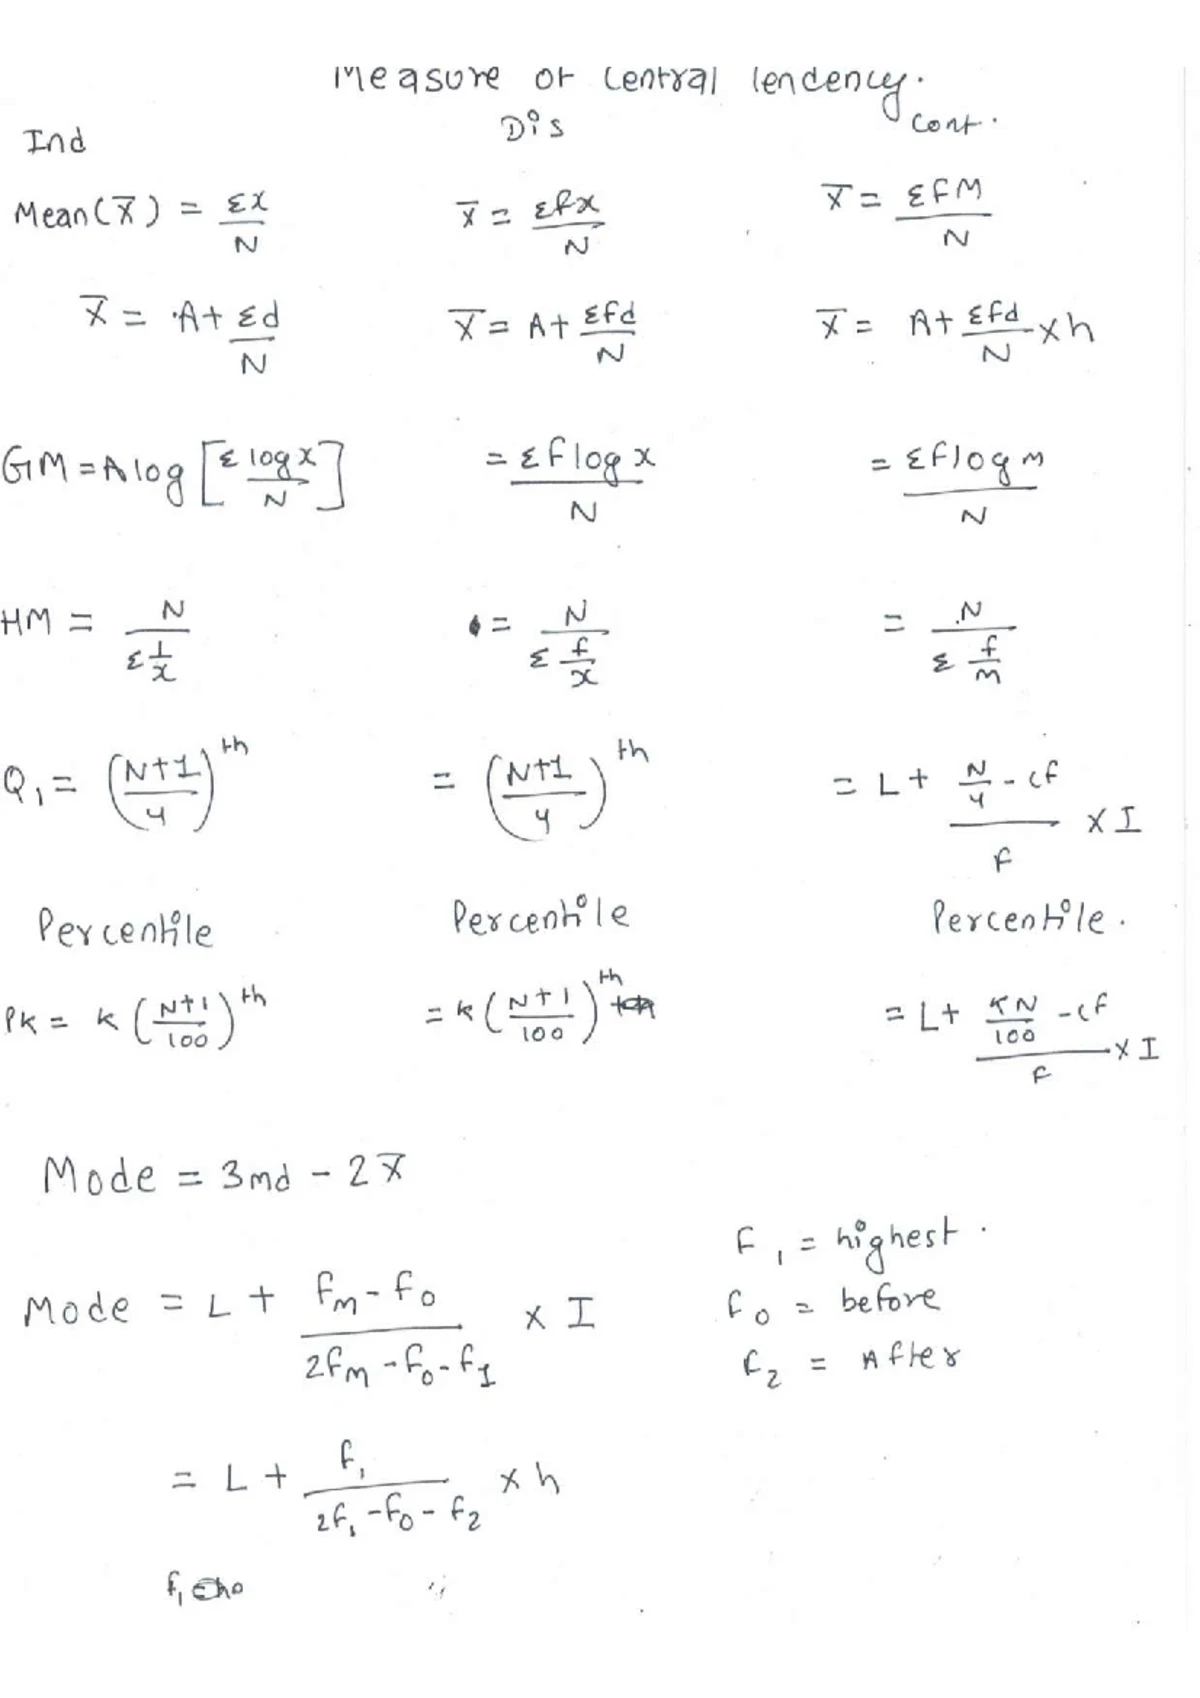 Measure of Central Tendency.
Ind Dis Cont.
Mean (x̄) = Σx/N x̄ = Σfx/N x̄ = ΣfM/N
x̄ = A + Σd/N x̄ = A + Σfd/N x̄ = A + Σfd/N × h
GM = A log [Σ log x / N] = Σ f log x / N = Σ f log m / N
HM = N / Σ 1/x = N / Σ f/x = N / Σ f/m
Q₁ = ((N+1)/4)th = ((N+1)/4)th = L + (N/4 - cf)/F × I
Percentile Percentile Percentile.
Pk = k ((N+1)/100)th = k ((N+1)/100)th = L + (KN/100 - cf)/F × I
Mode = 3md - 2x̄
F₁ = highest.
Mode = L + (fm - f0)/(2fm - f0 - f1) × I f0 = before
f2 = After
= L + f₁/(2f₁ - f0 - f2) × h